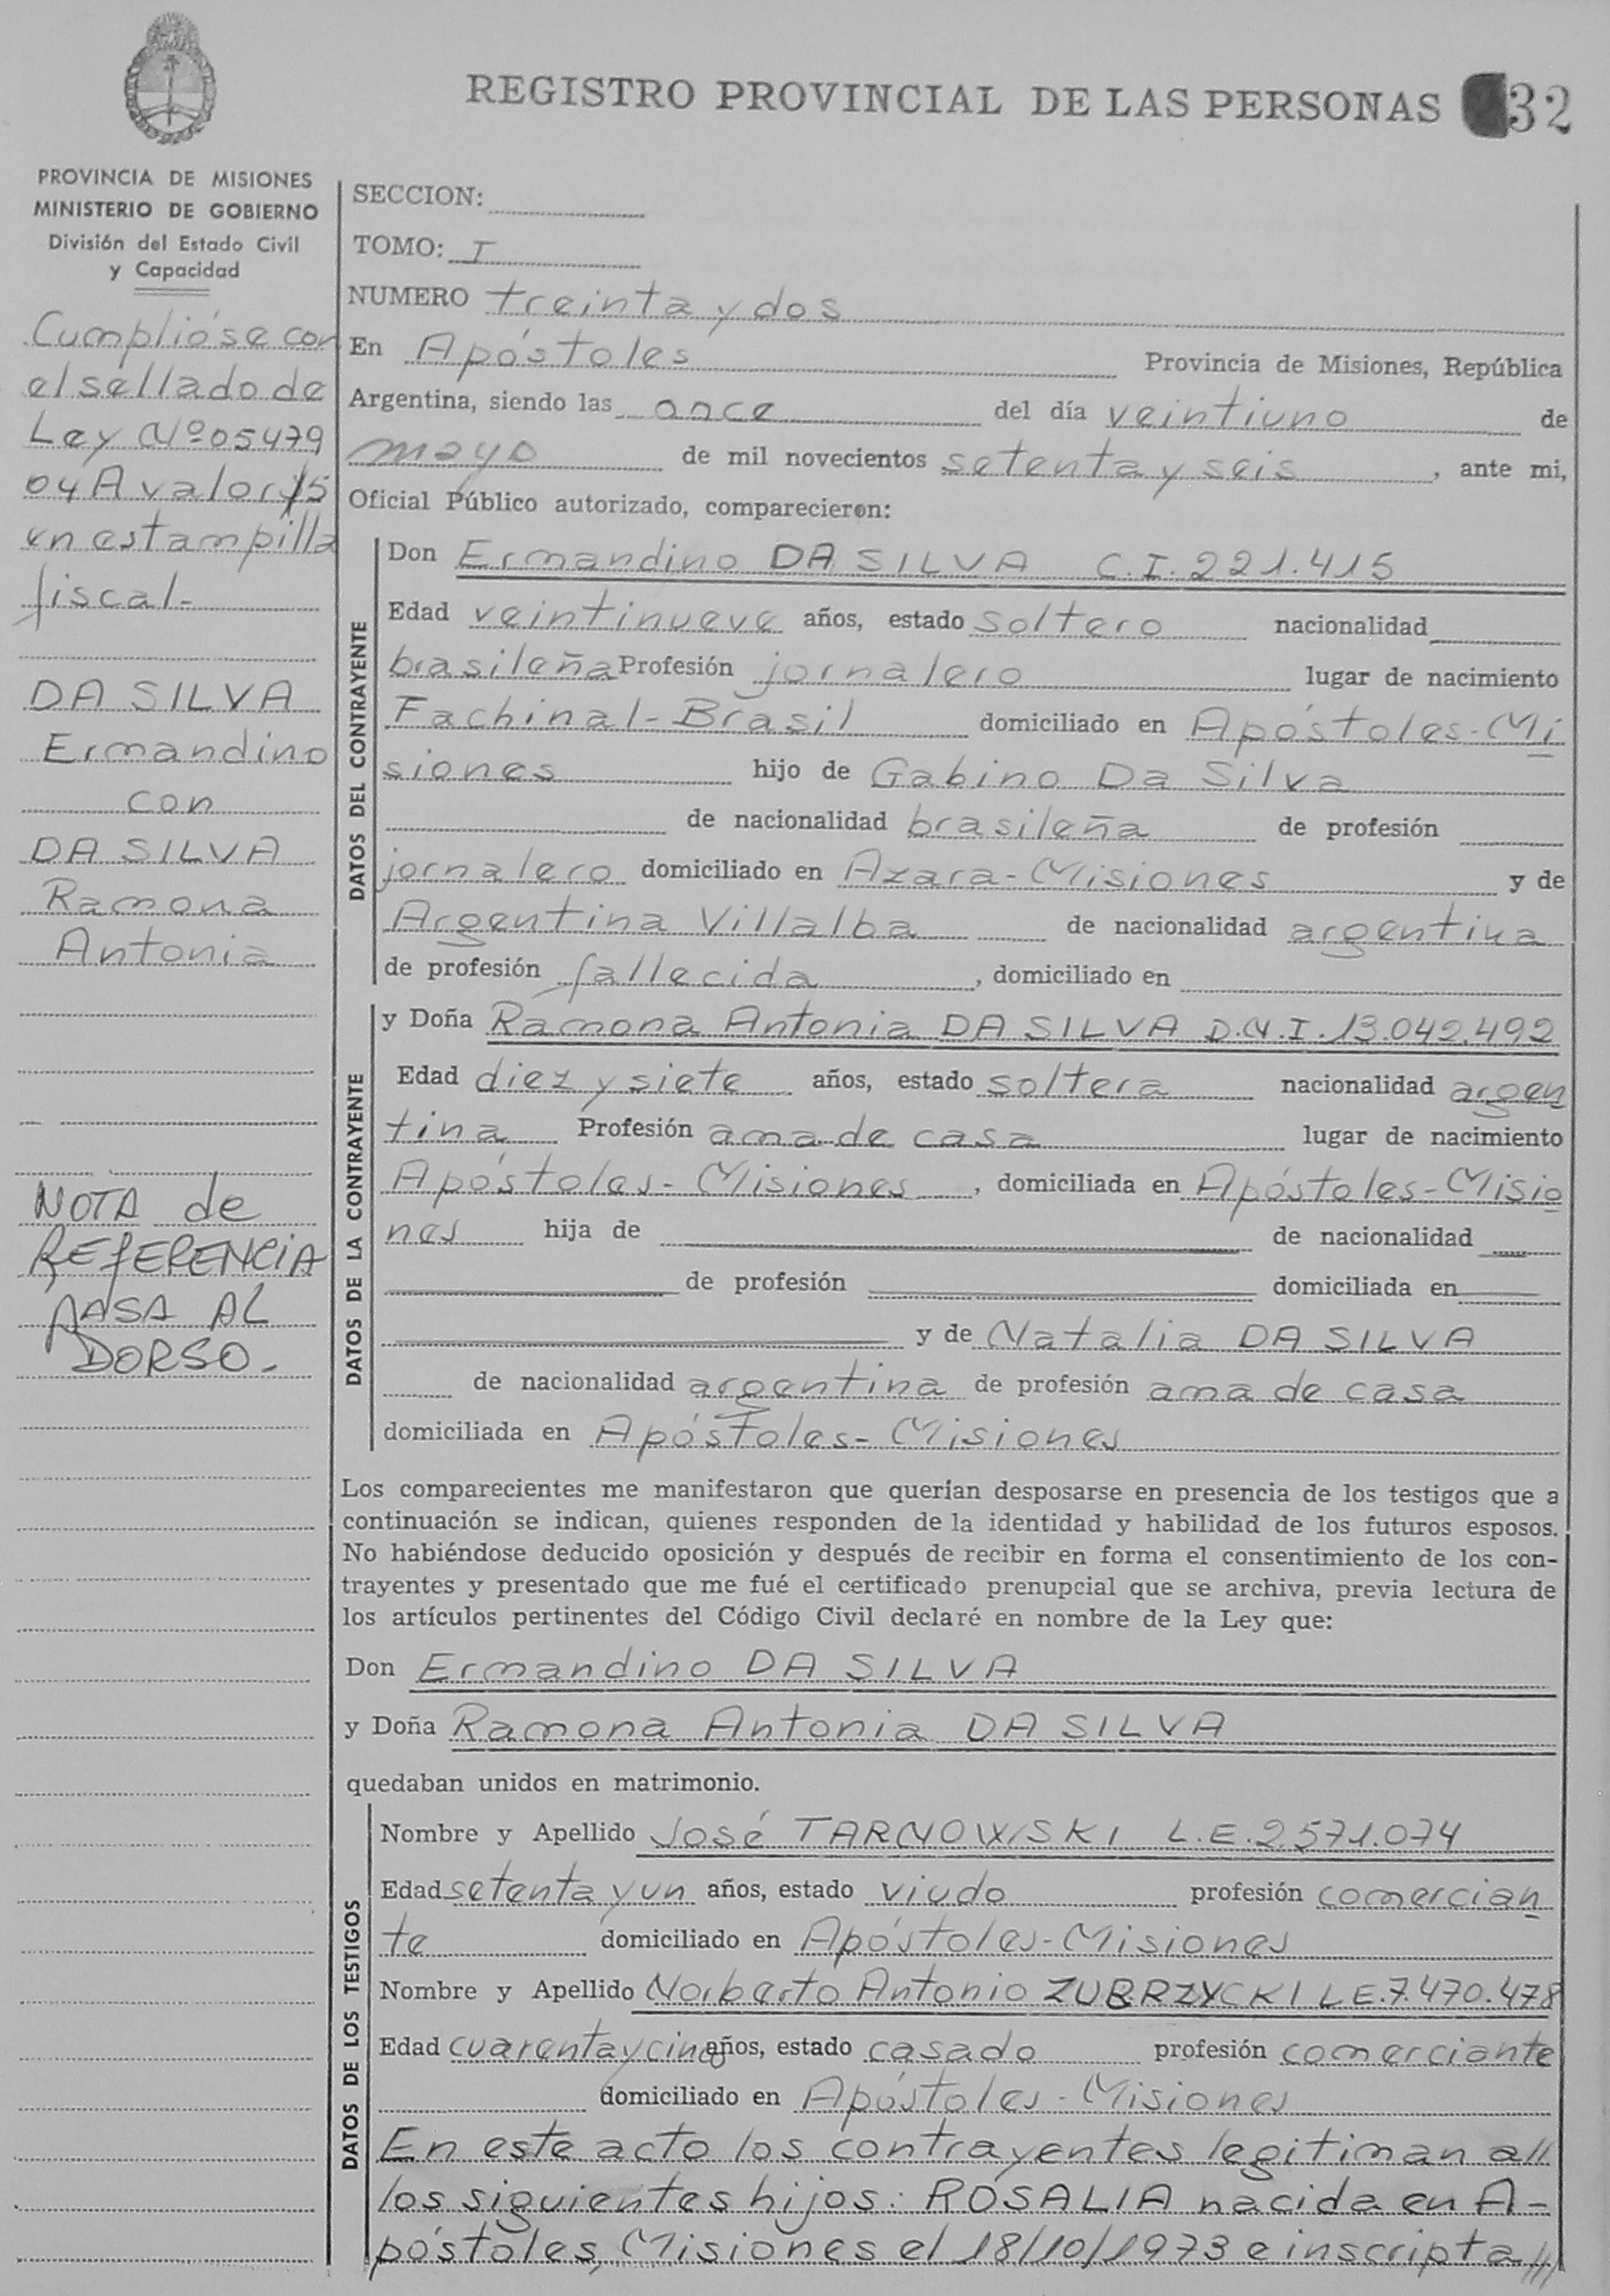 REGISTRO PROVINCIAL DE LAS PERSONAS 32
PROVINCIA DE MISIONES
MINISTERIO DE GOBIERNO
División del Estado Civil
y Capacidad
Cumplióse con
el sellado de
Ley Nº 05479
04 A valor $5
en estampilla
fiscal-
DA SILVA
Ermandino
con
DA SILVA
Ramona
Antonia
NOTA de
REFERENCIA
PASA AL
DORSO-
SECCION:
TOMO: I
NUMERO treinta y dos
En Apóstoles Provincia de Misiones, República
Argentina, siendo las once del día veintiuno de
mayo de mil novecientos setenta y seis, ante mi,
Oficial Público autorizado, comparecieron:
DATOS DEL CONTRAYENTE
Don Ermandino DA SILVA C.I. 221.415
Edad veintinueve años, estado soltero nacionalidad
brasileña Profesión jornalero lugar de nacimiento
Fachinal-Brasil domiciliado en Apóstoles-Mi
siones hijo de Gabino Da Silva
de nacionalidad brasileña de profesión
jornalero domiciliado en Azara-Misiones y de
Argentina Villalba de nacionalidad argentina
de profesión fallecida, domiciliado en
DATOS DE LA CONTRAYENTE
y Doña Ramona Antonia DA SILVA D.N.I. 13.042.492
Edad diez y siete años, estado soltera nacionalidad argen
tina Profesión ama de casa lugar de nacimiento
Apóstoles-Misiones, domiciliada en Apóstoles-Misio
nes hija de de nacionalidad
de profesión domiciliada en
y de Natalia DA SILVA
de nacionalidad argentina de profesión ama de casa
domiciliada en Apóstoles-Misiones
Los comparecientes me manifestaron que querían desposarse en presencia de los testigos que a
continuación se indican, quienes responden de la identidad y habilidad de los futuros esposos.
No habiéndose deducido oposición y después de recibir en forma el consentimiento de los con-
trayentes y presentado que me fué el certificado prenupcial que se archiva, previa lectura de
los artículos pertinentes del Código Civil declaré en nombre de la Ley que:
Don Ermandino DA SILVA
y Doña Ramona Antonia DA SILVA
quedaban unidos en matrimonio.
DATOS DE LOS TESTIGOS
Nombre y Apellido José TARNOWISKI L.E. 2.571.074
Edad setenta y un años, estado viudo profesión comercian
te domiciliado en Apóstoles-Misiones
Nombre y Apellido Norberto Antonio ZUBRZYCKI L.E. 7.470.478
Edad cuarenta y cinco años, estado casado profesión comerciante
domiciliado en Apóstoles-Misiones
En este acto los contrayentes legitiman a//
los siguientes hijos: ROSALIA nacida en A-
póstoles, Misiones el 18/10/1973 e inscripta///